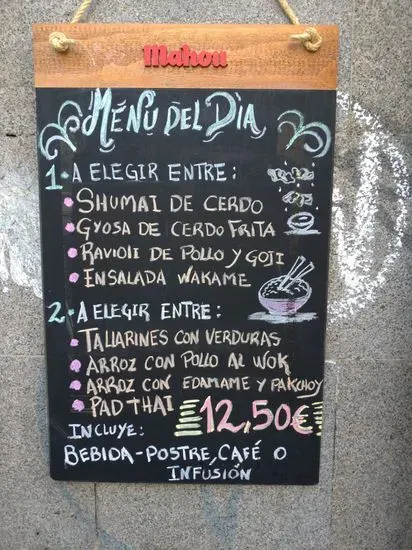 Mahou
MÉNU DEL DÍA
1. A ELEGIR ENTRE:
SHUMAI DE CERDO
GYOSA DE CERDO FRITA
RAVIOLI DE POLLO Y GOJI
ENSALADA WAKAME
2. A ELEGIR ENTRE:
TALLARINES CON VERDURAS
ARROZ CON POLLO AL WOK
ARROZ CON EDAMAME Y PAKCHOY
PAD THAI
12,50€
INCLUYE:
BEBIDA-POSTRE, CAFÉ O
INFUSIÓN